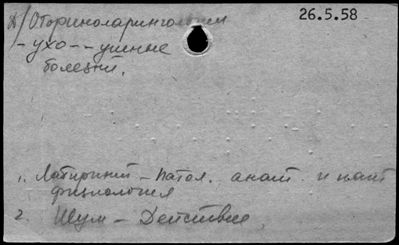 26.5.58
А/ Оториноларингология
- ухо - - ушные
болезни.
1. Лабиринт - патол. анат. и пат.
физиология
2. Шум - Действие